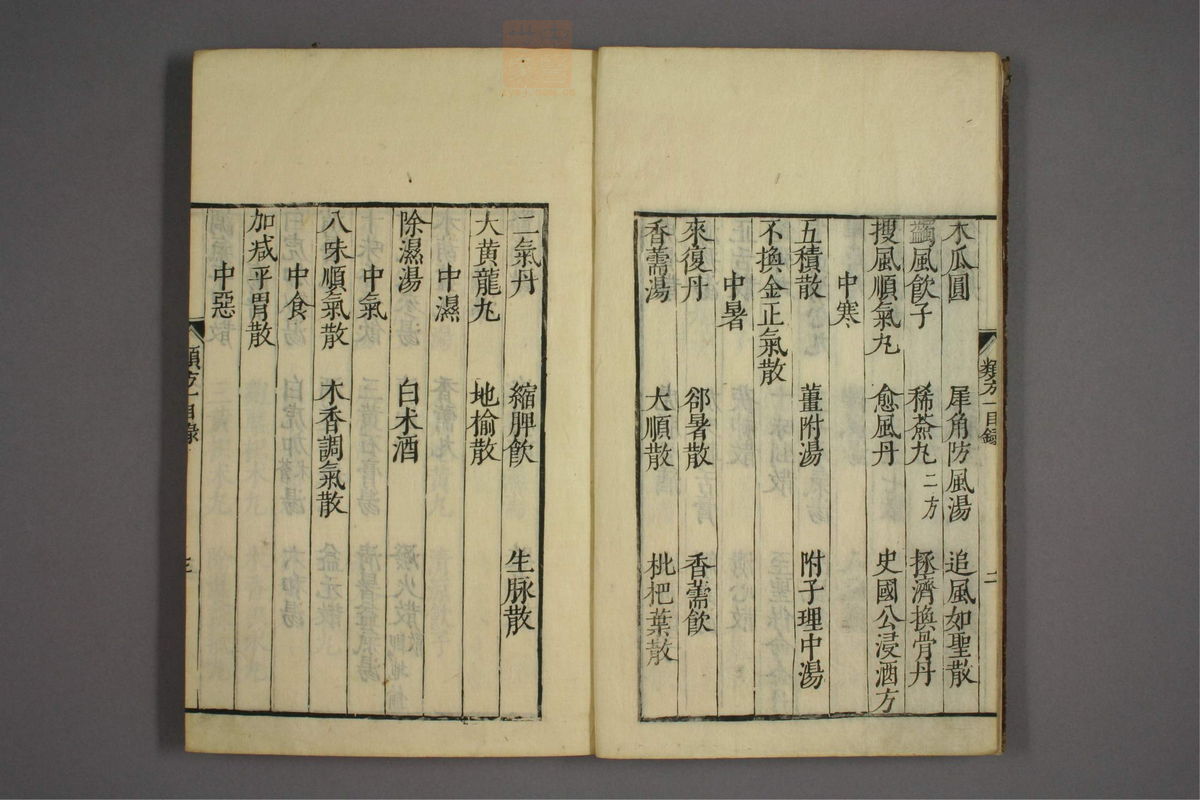 木瓜圓 犀角防風湯 追風如聖散
蠲風飲子 稀薟丸二方 拯濟換骨丹
搜風順氣丸 愈風丹 史國公浸酒方
中寒
五積散 薑附湯 附子理中湯
不換金正氣散
中暑
來復丹 郤暑散 香薷飲
香薷湯 大順散 枇杷葉散
類方一目錄 二
二氣丹 縮脾飲 生脉散
大黃龍丸 地榆散
中濕
除濕湯 白术酒
中氣
八味順氣散 木香調氣散
中食
加减平胃散
中惡
類方一目錄 三